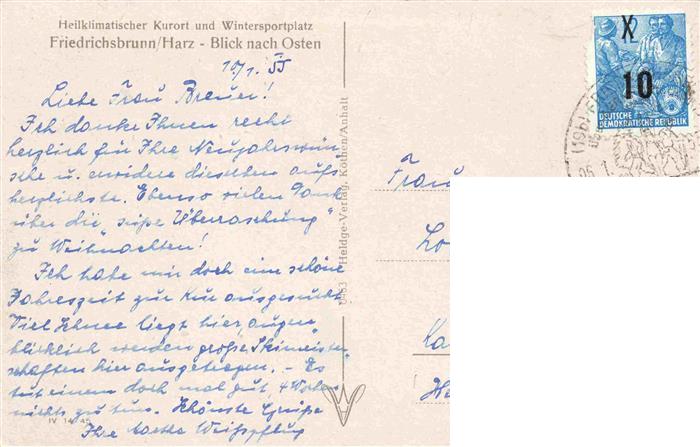 Heilklimatischer Kurort und Wintersportplatz
Friedrichsbrunn/Harz - Blick nach Osten
10/1. 55
Liebe Frau Breuer!
Ich danke Ihnen recht
herzlich für Ihre Neujahrswün-
sche u. erwidere dieselben aufs
herzlichste. Ebenso vielen Dank
über die „süße Überraschung"
zu Weihnachten!
Ich habe mir doch eine schöne
Jahreszeit zur Kur ausgesucht.
Viel Schnee liegt hier, augen-
blicklich werden große Skimeister-
schaften hier ausgetragen. - Es
tut einem doch mal gut, 4 Wochen
nichts zu tun. Schönste Grüße
Ihre Weißpflug
IV 14/45
0483 Heldge-Verlag, Köthen/Anhalt
X
10
DEUTSCHE
DEMOKRATISCHE REPUBLIK
(19b)
Frau